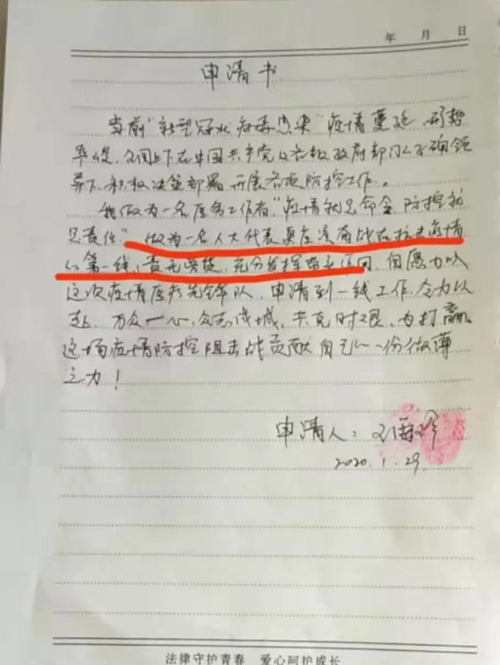 年 月 日
申请书
当前"新型冠状病毒感染"疫情蔓延，形势
严峻，全国上下在中国共产党及各级政府部门正确领
导下，积极决策部署，开展各项防控工作。
我做为一名医务工作者，"疫情就是命令，防控就
是责任"，做为一名人大代表更应该奋战在抗击疫情
的第一线，责无旁贷，充分发挥带头作用，自愿加入
这次疫情医疗先锋队，申请到一线工作，全力以
赴，万众一心，众志成城，共克时艰，为打赢
这场疫情防控阻击战贡献自己的一份微薄
之力！
申请人：
2020.1.29
法律守护青春 爱心呵护成长